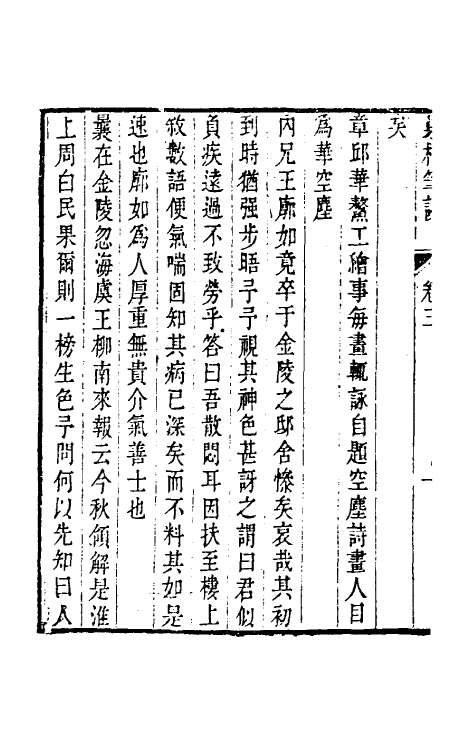 卷三
矣
章邱華鰲工繪事每畫輒詠自題空塵詩畫人目
為華空塵
內兄王廓如竟卒于金陵之邸舍慘矣哀哉其初
到時猶强步晤予予視其神色甚訝之謂曰君似
負疾遠過不致勞乎答曰吾散悶耳因扶至樓上
敘數語便氣喘固知其病已深矣而不料其如是
速也廓如為人厚重無貴介氣善士也
曩在金陵忽海虞王柳南來報云今秋領解是淮
上周白民果爾則一榜生色予問何以先知曰人